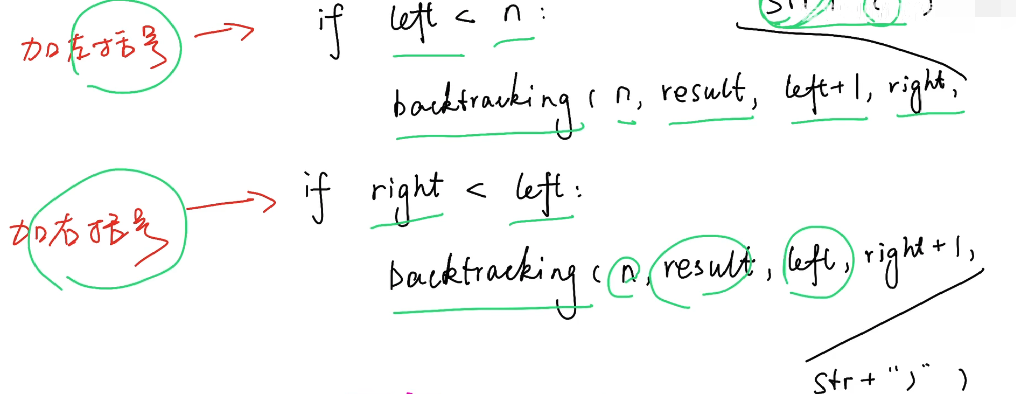 加左括号 → if left < n :
backtracking ( n, result, left+1, right,
加右括号 → if right < left :
backtracking ( n, result, left, right+1,
str + ")" )